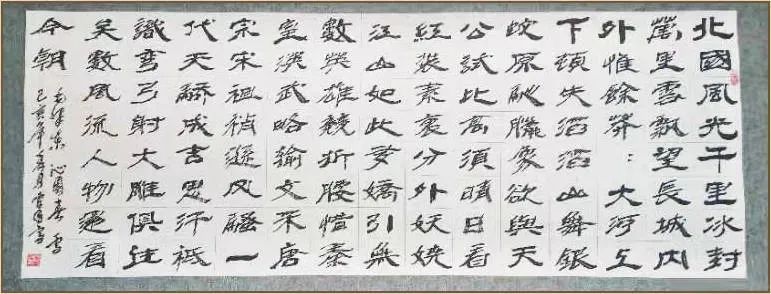 北國風光千里冰封
萬里雪飄望長城内
外惟餘莽：大河上
下頓失滔滔山舞銀
蛇原馳臘象欲與天
公試比高須晴日看
紅裝素裹分外妖嬈
江山如此多嬌引無
數英雄競折腰惜秦
皇漢武略輸文采唐
宗宋祖稍遜風騷一
代天驕成吉思汗祗
識彎弓射大雕俱往
矣數風流人物還看
今朝
毛澤東 沁園春 雪
己亥年 月 書